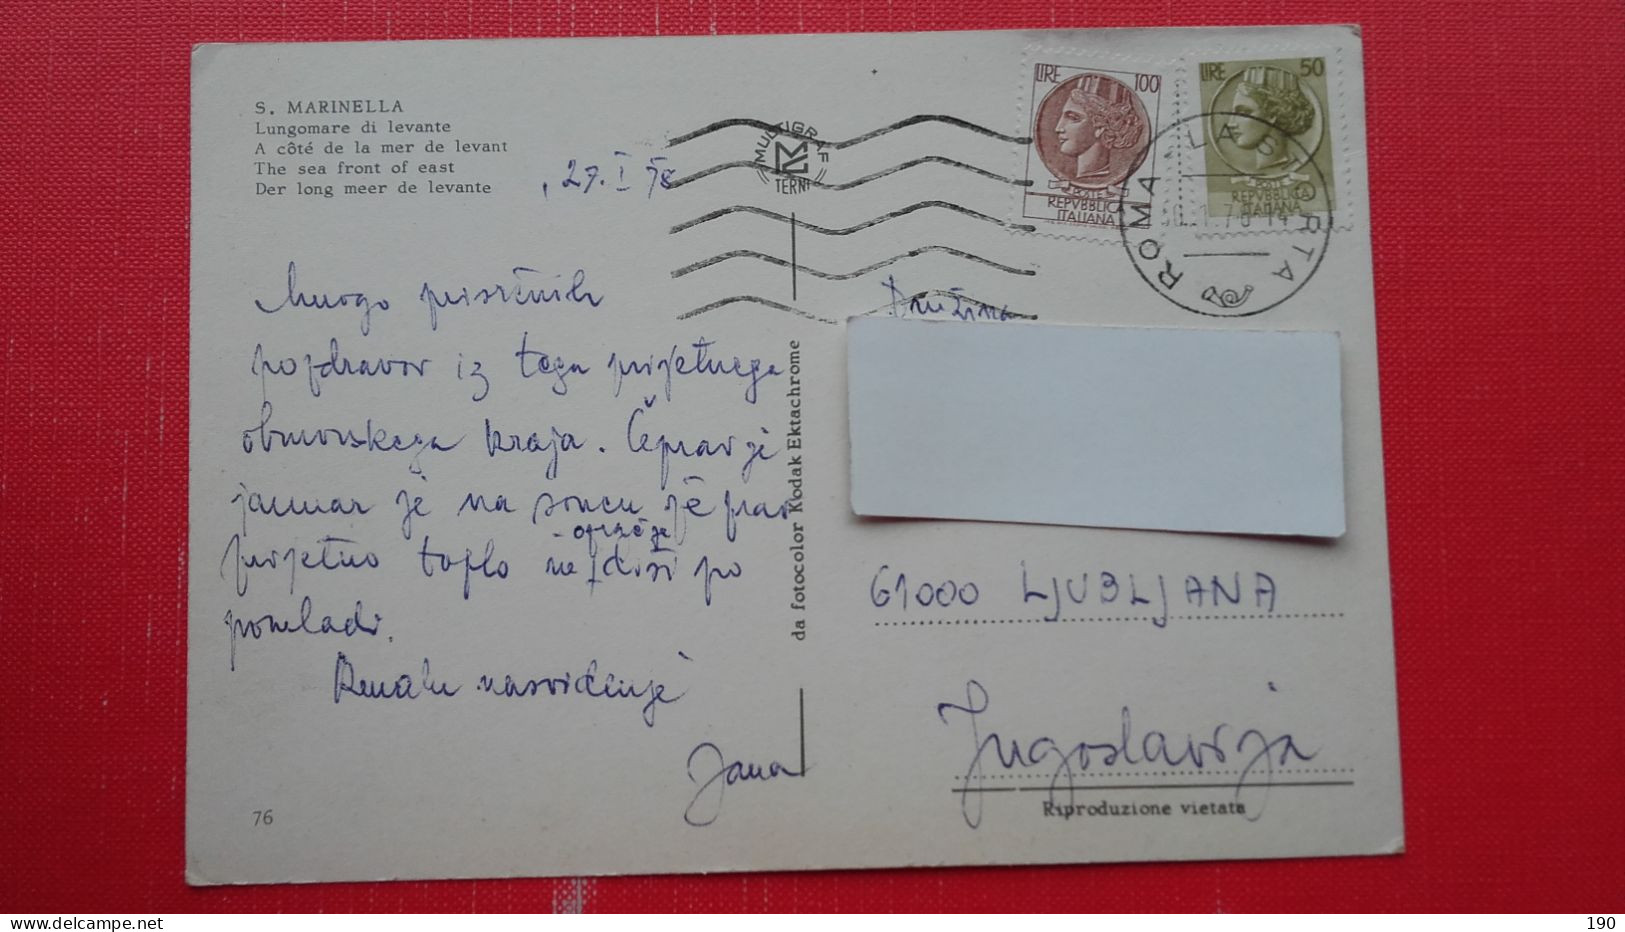 S. MARINELLA
Lungomare di levante
A côté de la mer de levant
The sea front of east
Der long meer de levante
, 27. I 78
MULTIGRAF
TERNI
LIRE 100
POSTE
REPVBBLICA
ITALIANA
LIRE 50
POSTE
REPVBBLICA
ITALIANA
ROMA LA STORTA
Mnogo prisrčnih
pozdravov iz tega prijetnega
obmorskega kraja. Čeprav je
januar je na soncu že prav
prijetno toplo in opačže diši po
pomladi.
nasvidenje
Jana
76
da fotocolor Kodak Ektachrome
Družina
61000 LJUBLJANA
Jugoslavija
Riproduzione vietata
190